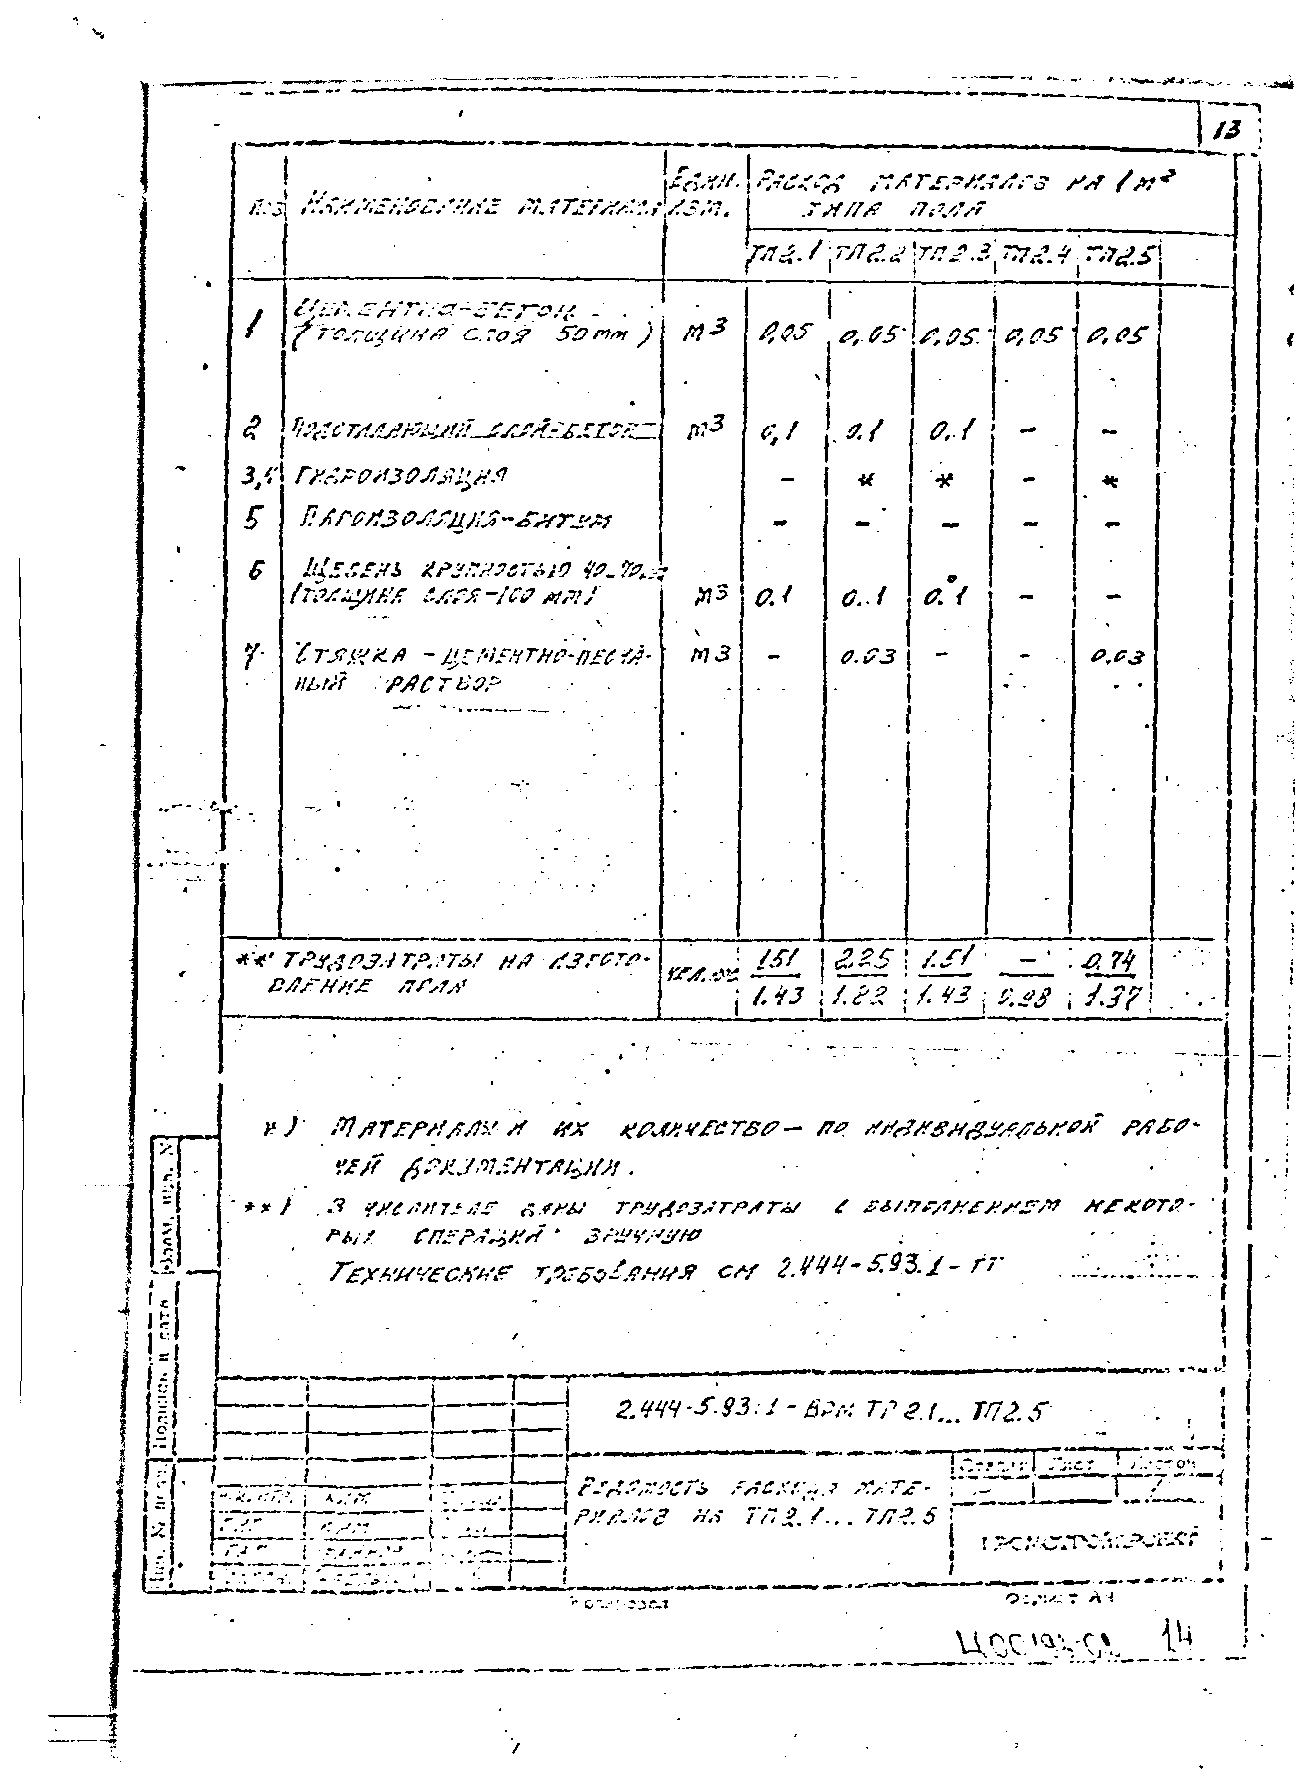 13
п.з. Наименование материала Един. изм. Расход материалов на 1 м² типа пола
ТП2.1 ТП2.2 ТП2.3 ТП2.4 ТП2.5
1 Цементно-бетон
(толщина слоя 50 мм) м3 0,05 0,05 0,05 0,05 0,05
2 Подстилающий слой-бетон м3 0,1 0.1 0.1 – –
3,4 Гидроизоляция – * * – *
5 Пароизоляция-битум – – – – –
6 Щебень крупностью 40-70
(толщина слоя-100 мм) м3 0.1 0.1 0.1 – –
7 Стяжка - цементно-песча-
ный раствор м3 – 0.03 – – 0.03
**) Трудозатраты на изгото-
вление пола чел.ч 1.51 2.25 1.51 — 0.74
1.43 1.82 1.43 0.98 1.37
*) Материалы и их количество – по индивидуальной рабо-
чей документации.
**) В числителе даны трудозатраты с выполнением некото-
рых операций вручную
Технические требования см 2.444-5.93.1-ТТ
Взам. инв. №
Подпись и дата
Инв. № подл.
2.444-5.93.1 - ВРМ ТП 2.1... ТП2.5
Ведомость расхода мате-
риалов на ТП2.1... ТП2.5
Стадия Лист Листов
1
Копировал Формат А4
14